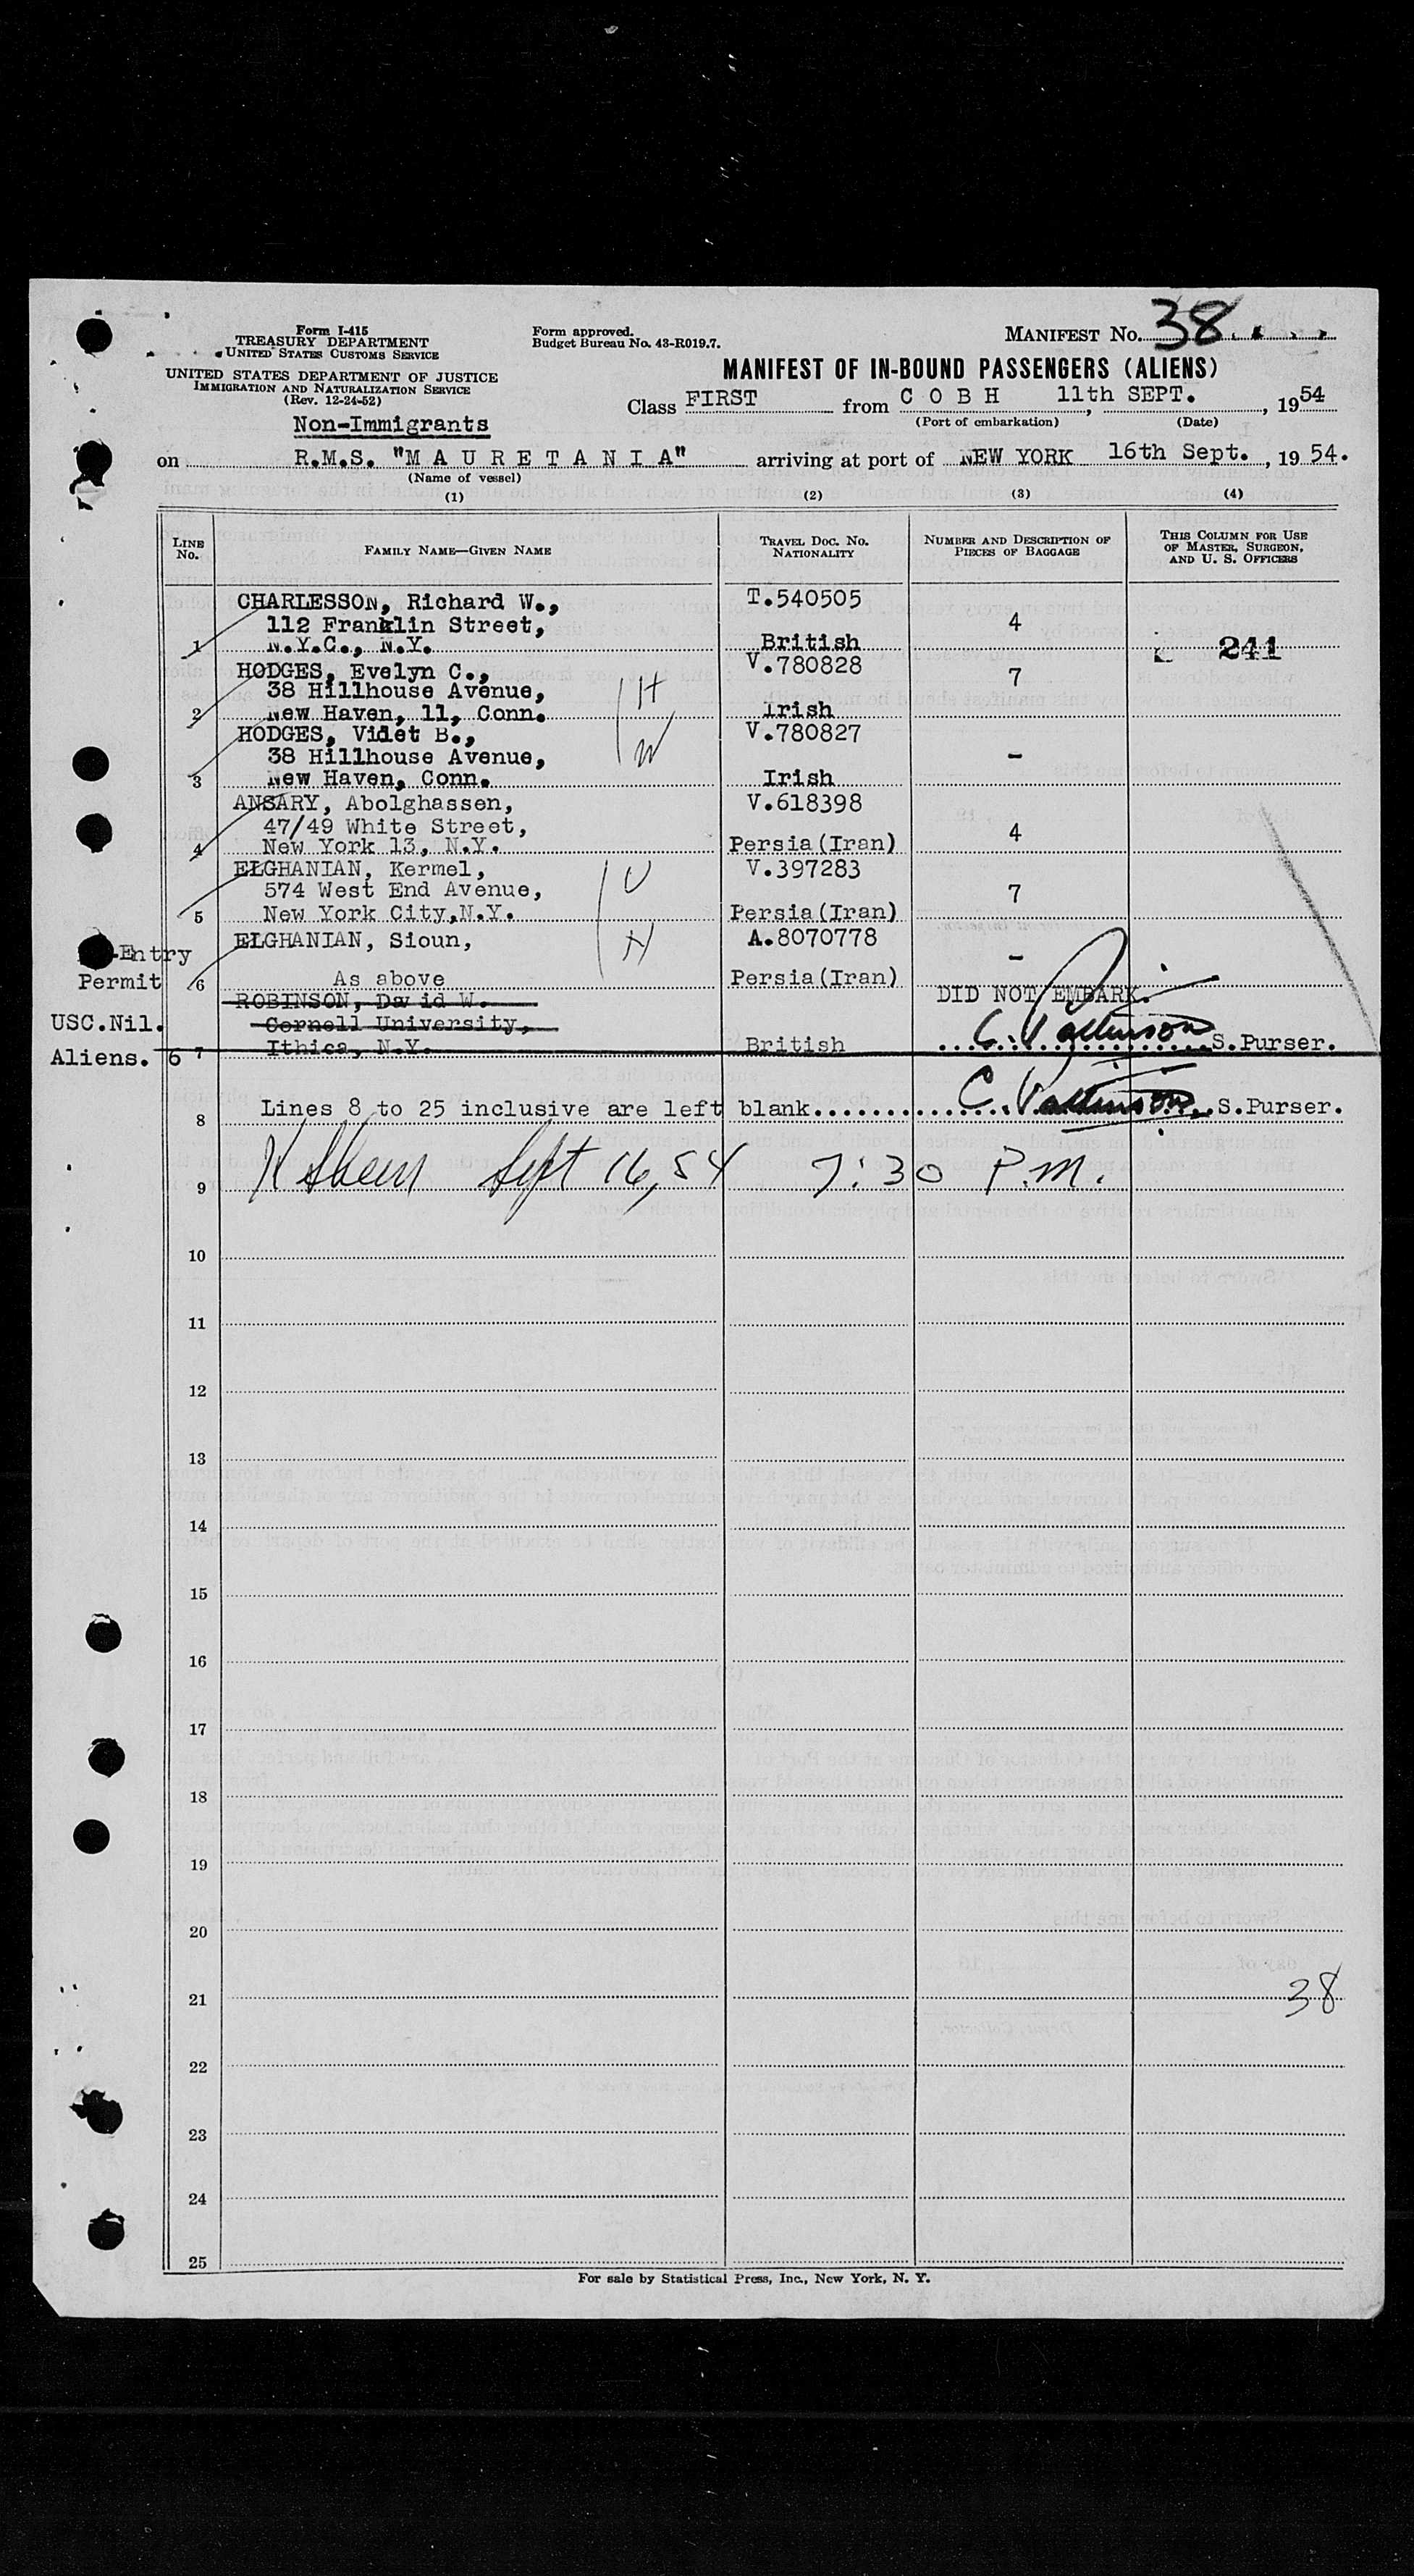 Form I-415
TREASURY DEPARTMENT
UNITED STATES CUSTOMS SERVICE
UNITED STATES DEPARTMENT OF JUSTICE
IMMIGRATION AND NATURALIZATION SERVICE
(Rev. 12-24-52)
Form approved.
Budget Bureau No. 43-R019.7.
MANIFEST No. 38
MANIFEST OF IN-BOUND PASSENGERS (ALIENS)
Class FIRST from C O B H 11th SEPT., 1954
(Port of embarkation) (Date)
Non-Immigrants
on R.M.S. "M A U R E T A N I A" arriving at port of NEW YORK 16th Sept., 19 54.
(Name of vessel)
(1) (2) (3) (4)
LINE No. FAMILY NAME—GIVEN NAME TRAVEL DOC. NO. NATIONALITY NUMBER AND DESCRIPTION OF PIECES OF BAGGAGE THIS COLUMN FOR USE OF MASTER, SURGEON, AND U. S. OFFICERS
CHARLESSON, Richard W., T.540505
112 Franklin Street, 4
1 N.Y.C., N.Y. British 241
HODGES, Evelyn C., V.780828
38 Hillhouse Avenue, H 7
2 New Haven, 11, Conn. Irish
HODGES, Videt B., V.780827
38 Hillhouse Avenue, W -
3 New Haven, Conn. Irish
ANSARY, Abolghassen, V.618398
47/49 White Street, 4
4 New York 13, N.Y. Persia(Iran)
ELGHANIAN, Kermel, V.397283
574 West End Avenue, 7
5 New York City,N.Y. Persia(Iran)
ELGHANIAN, Sioun, A.8070778
-Entry H -
Permit 6 As above Persia(Iran)
ROBINSON, David W. DID NOT EMBARK.
USC.Nil. Cornell University,
Aliens. 6 7 Ithica, N.Y. British C. Pattinson S.Purser.
8 Lines 8 to 25 inclusive are left blank. C. Pattinson S.Purser.
9 Sept 16, 54 7:30 P.M.
10
11
12
13
14
15
16
17
18
19
20
21 38
22
23
24
25
For sale by Statistical Press, Inc., New York, N. Y.